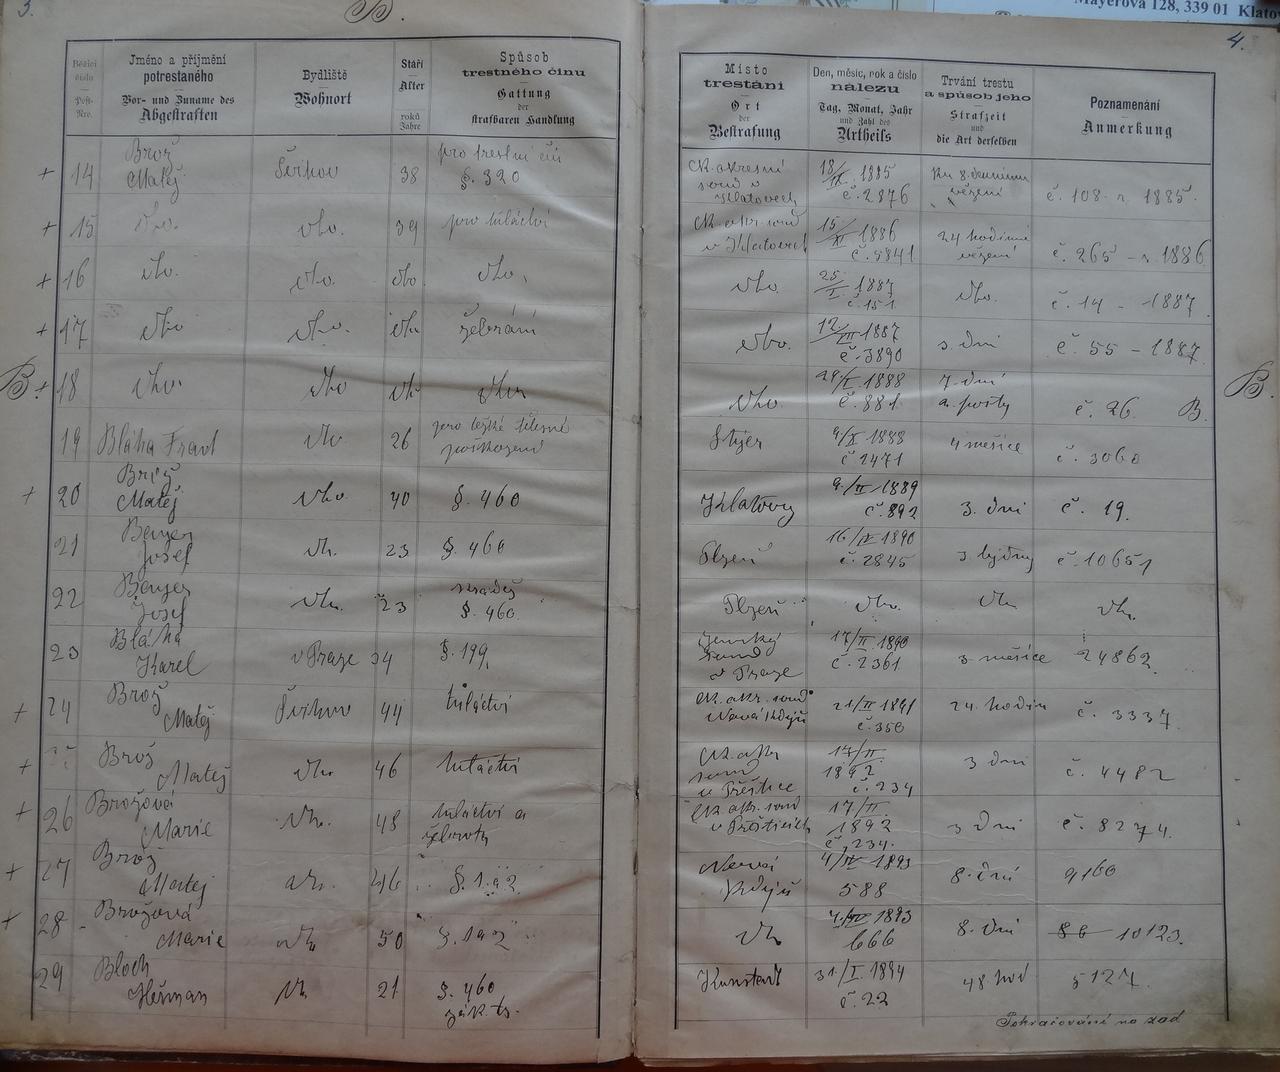 Mayerova 128, 339 01 Klatov
3.
B.
4.
Běžící číslo
Post-Nro.
Jméno a příjmění
potrestaného
Vor- und Zuname des
Abgestraften
Bydliště
Wohnort
Stáří
Alter
roků
Jahre
Spůsob
trestného činu
Gattung
der
strafbaren Handlung
Místo
trestání
Ort
der
Bestrafung
Den, měsíc, rok a číslo
nálezu
Tag, Monat, Jahr
und Zahl des
Urtheils
Trvání trestu
a spůsob jeho
Strafzeit
und
die Art derselben
Poznamenání
Anmerkung
+ 14 Brož Matěj Švihov 38 pro trestní čin §. 320 Ck. okresní soud v Klatovech 18/IX 1885 č. 2876 8 denním vězení č. 108 r. 1885.
+ 15 dto. dto. 39 pro tuláctví Ck. okr. soud v Klatovech 15/XII 1886 č. 5841 24 hodinné vězení č. 265 - r. 1886
+ 16 dto. dto. dto dto. dto. 25/I. 1887 č. 151 dto. č. 14 - 1887.
+ 17 dto dto. dto žebrání dto. 12/VII 1887 č. 3890 3. dní č. 55 - 1887.
B. + 18 dto. dto dto dto dto 29/I. 1888 č. 881. 7 dní a. posty č. 26. B. B.
19 Bláha Frant dto 26 pro těžké tělesné poškození Štýer 9/X 1888 č 2471 4 měsíce č. 3060
+ 20 Brož Matěj dto. 40 §. 460 Klatovy 9./II 1889 č. 892 3. dni č. 19.
21 Beyer Josef dto. 23 §. 460 Plzeň 16/IV 1890 č. 2845 3 týdny č. 10651
22 Beyer Josef dto. 23 krádež §. 460. Plzeň dto. dto dto.
23 Bláha Karel v Praze 34 §. 199. Zemský soud v Praze 17/II. 1890 č. 2361 3 měsíce 24862.
+ 24 Brož Matěj Švihov 44 tuláctví Ck. okr. soud Nová Kdyň 21/II 1891 č. 350 24 hodin č. 3337.
+ Brož Matěj dto 46 tuláctví Ck. okr. soud v Přeštice 17/II. 1892 č. 234 3 dni č. 4482
+ 26 Brožová Marie dto. 48 tuláctví a žebrota Ck. okr. soud v Přešticích 17/II. 1892 č. 234. 3 dni č. 8274.
+ 27 Brož Matěj dto. 46 §. 1. a 2. Nová Kdyň 4/IV 1893 588 8. dní 9160
+ 28 Brožová Marie dto 50 §. 1 a 2 dto 1893 666 8. dní 10123.
29 Bloch Heřman dto 21 §. 460 zák. tr. Kunstadt 31/I. 1894 č. 22 48 hod 5127.
Pokračování na zad